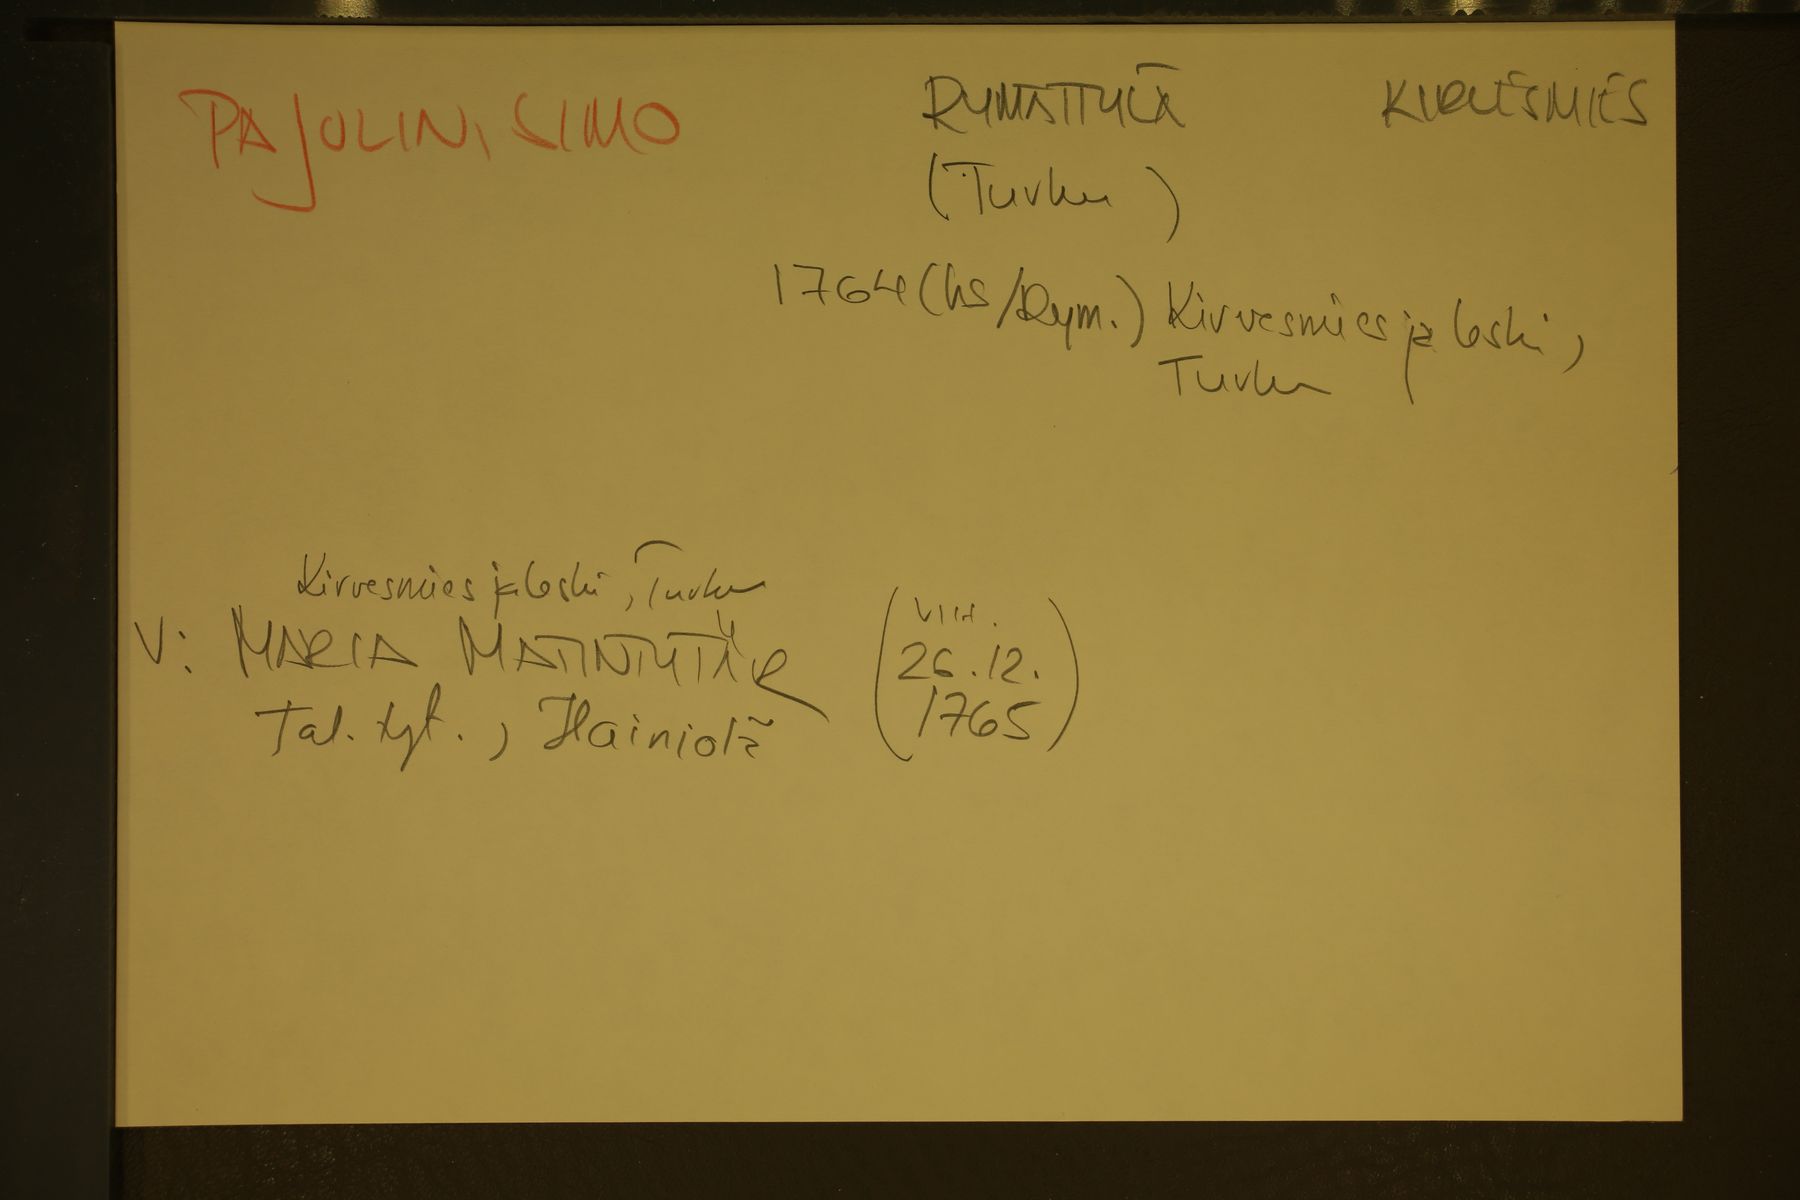 PAJULIN, SIMO RYMÄTTYLÄ KIRVESMIES
(Turku)
1764 (hs/Rym.) Kirvesmies ja leski,
Turku
Kirvesmies ja leski, Turku
V: MARIA MATINTYTÄR (VIH.
26.12.
1765)
Tal. tyt., Hainiola